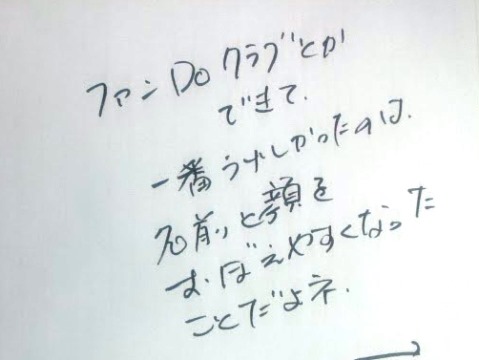 ファンDoクラブとか
できて.
一番うれしかったのは.
名前と顔を
おぼえやすくなった
ことだよネ.